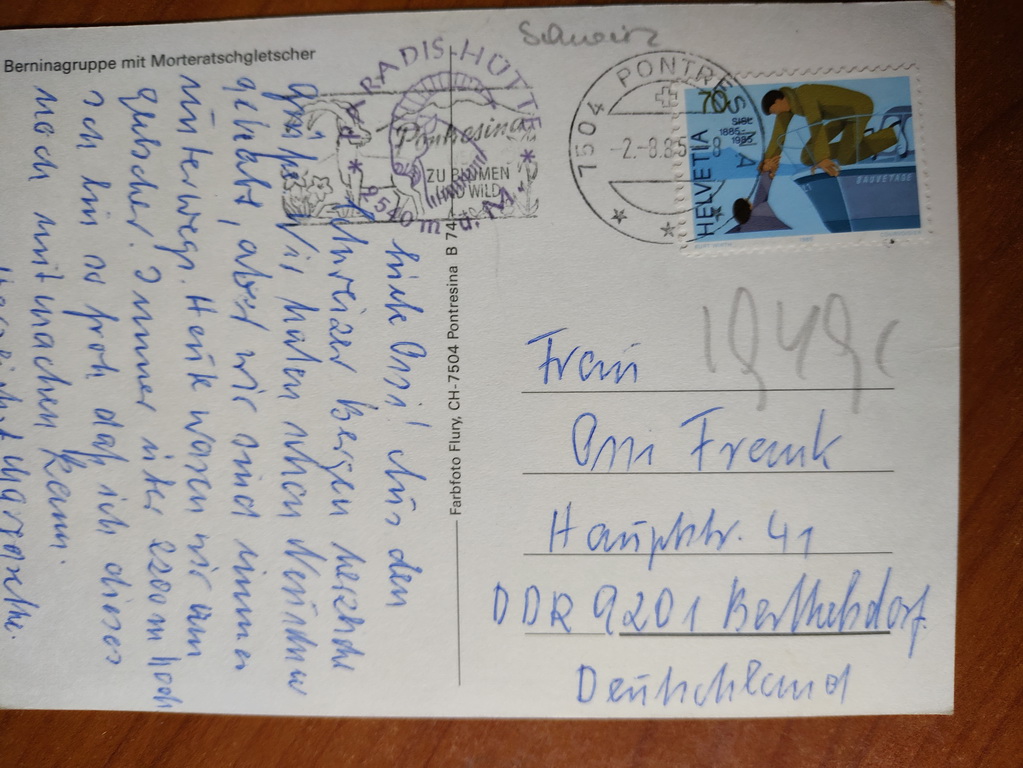 Berninagruppe mit Morteratschgletscher
Schweiz
PARADIS-HÜTTE
2540 m ü. M.
Pontresina
ZU BLUMEN
UND WILD
7504 PONTRESINA
-2.-8.85 - 8
HELVETIA
70
SISL
1885-
1985
SAUVETAGE
liebe Anni! Aus den
Schweizer Bergen herzliche
Grüße. Wir haben schon Neuschnee
gehabt, aber wir sind immer
unterwegs. Heute waren wir am
Gletscher. Immer über 2500 m hoch
Ich bin so froh daß ich dieses
noch mitmachen kann.
Farbfoto Flury, CH-7504 Pontresina B 74
1949
Frau
Anni Frank
Hauptstr. 41
DDR 9201 Berthelsdorf
Deutschland